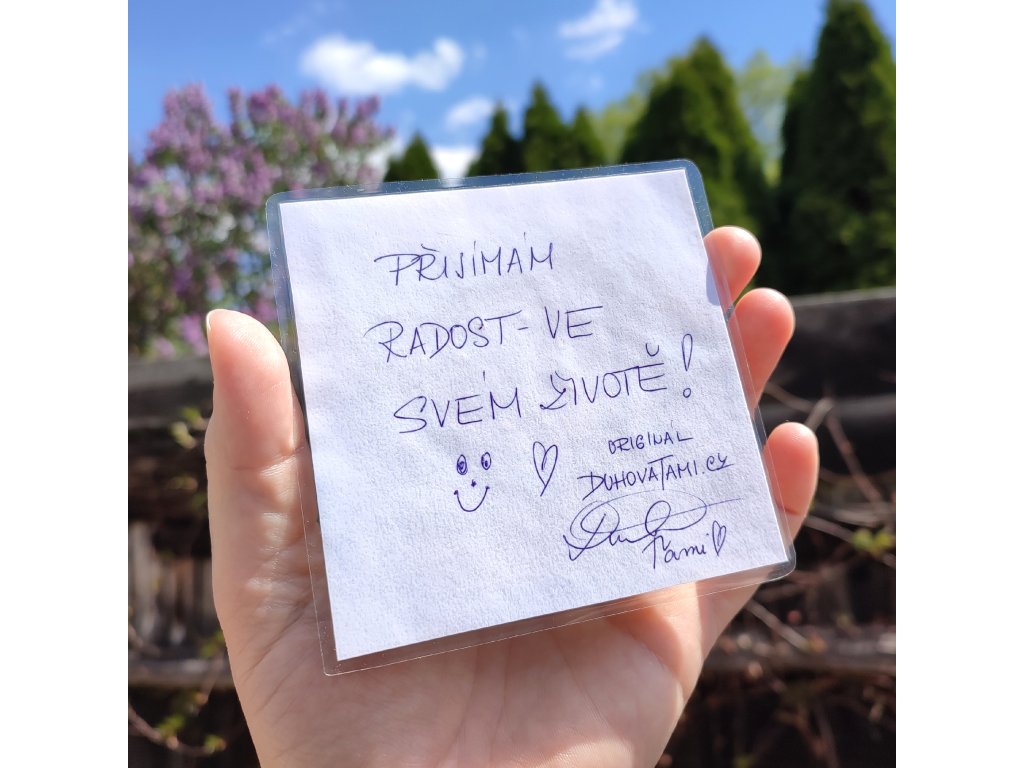 PŘIJÍMÁM
RADOST- VE
SVÉM ŽIVOTĚ!
ORIGINÁL
DUHOVATAMI.CZ
Tami